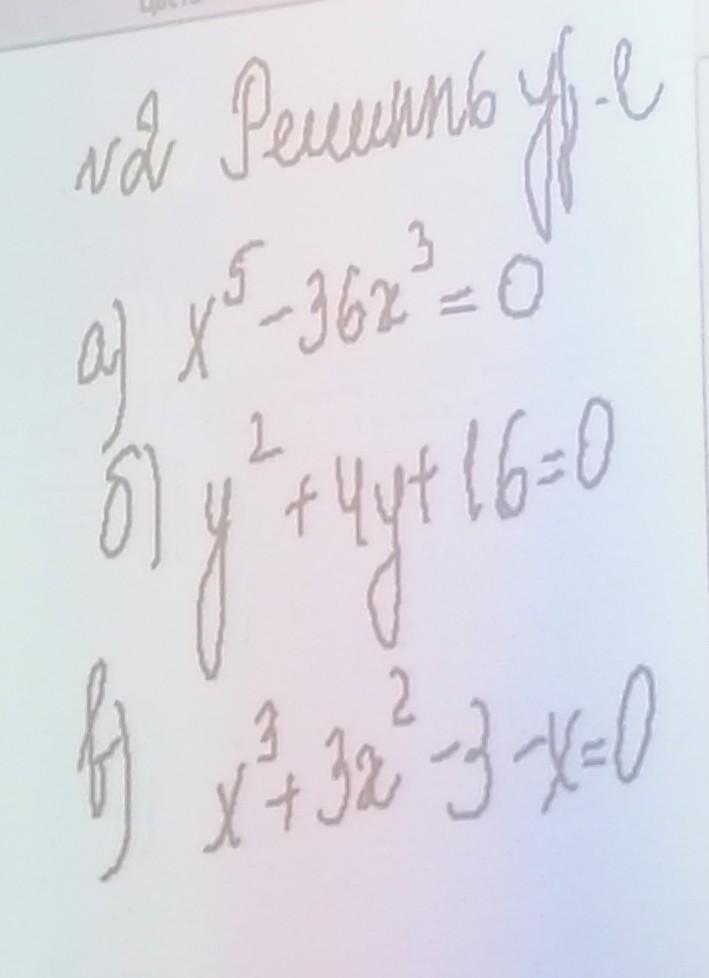 №2 Решить ур-е
а) x⁵ - 36x³ = 0
б) y² + 4y + 16 = 0
в) x³ + 3x² - 3 - x = 0